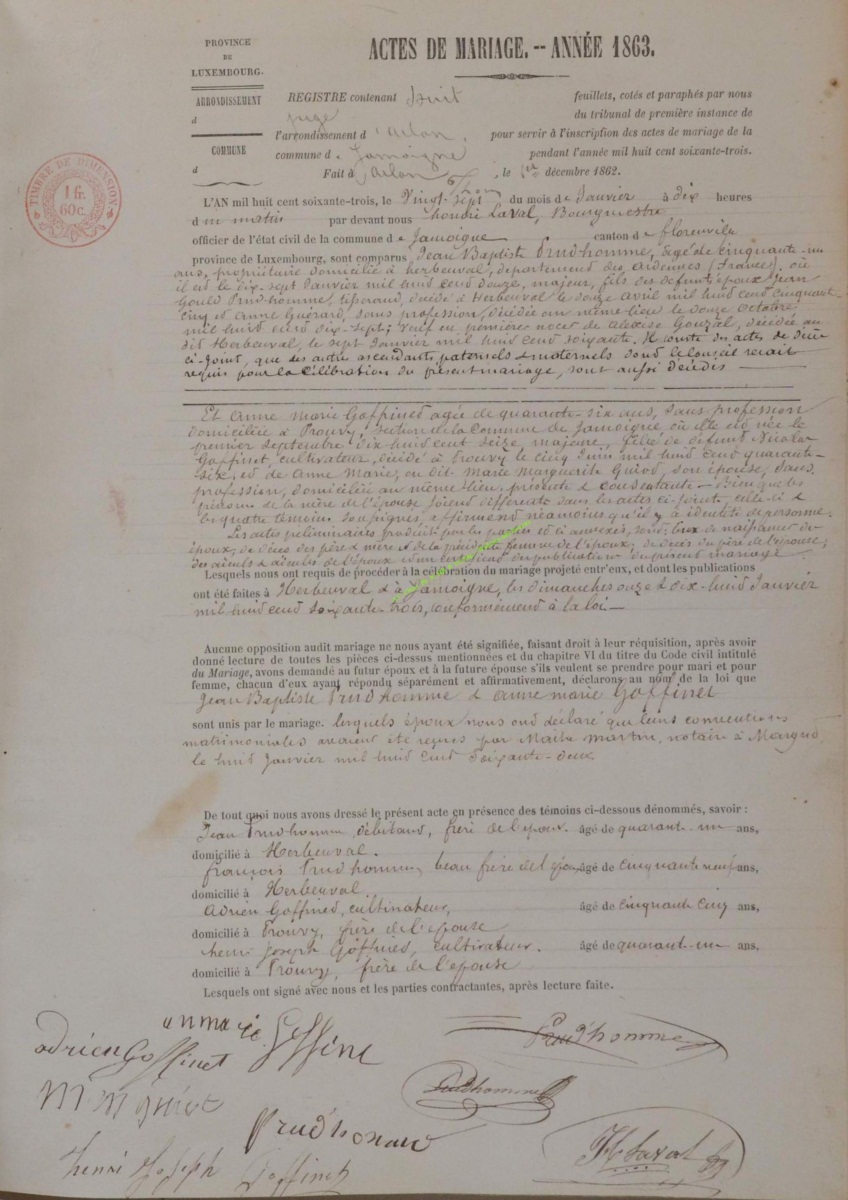 PROVINCE
DE
LUXEMBOURG.
ARRONDISSEMENT
d
COMMUNE
d
TIMBRE DE DIMENSION
1 fr.
60 c.
ACTES DE MARIAGE. -- ANNÉE 1863.
REGISTRE contenant huit feuillets, cotés et paraphés par nous
juge du tribunal de première instance de
l'arrondissement d'Arlon, pour servir à l'inscription des actes de mariage de la
commune de Jamoigne pendant l'année mil huit cent soixante-trois.
Fait à Arlon, le 1er décembre 1862.
L'AN mil huit cent soixante-trois, le Vingt-sept du mois de Janvier à dix heures
du matin par devant nous Laval, Bourgmestre
officier de l'état civil de la commune de Jamoigne canton de florenville
province de Luxembourg, sont comparus Jean Baptiste Prud'homme, âgé de cinquante-un
ans, propriétaire domicilié à herbeuval, département des Ardennes (France), où
il est né le dix-sept Janvier mil huit cent douze, majeur, fils des défunts époux Jean
Prud-homme, tisserand, décédé à Herbeuval le douze Avril mil huit cent cinquante
cinq et Anne Guérard, sans profession, décédée au même lieu le douze octobre
mil huit cent dix-sept; veuf en premières noces de décédée au
dit Herbeuval, le sept Janvier mil huit cent soixante. Il conste des actes de décès
ci-joint, que les autres ascendants paternels & maternels dont le conseil serait
requis pour la célébration du présent mariage, sont aussi décédés
Et Anne Marie Goffinet agée de quarante-six ans, sans profession
domiciliée à Prouvy, section de la Commune de Jamoigne où elle est née le
premier septembre dix-huit cent seize, majeure, fille de défunt Nicolas
Goffinet, cultivateur, décédé à Prouvy le cinq Juin mil huit cent quarante-
six, et de Anne Marie, ou dit Marie Marguerite son épouse, sans
profession, domiciliée au même lieu, présente & consentante - Bien que les
prénoms de la mère de l'épouse soient différents dans les actes ci-joints, celle-ci &
les quatre témoins soussignés, affirment néamoins qu'il y a identité de personne.
Les actes préliminaires produits par les parties et ci annexés, sont: ceux de naissance des
époux, de décès des père & mère et de la précédente femme de l'époux, de décès du père de l'épouse,
des aïeuls & aïeules de l'époux et un certificat des publications du présent mariage.
Lesquels nous ont requis de procéder à la célébration du mariage projeté entr'eux, et dont les publications
ont été faites à Herbeuval & à Jamoigne, les dimanches onze & dix-huit Janvier
mil huit cent soixante trois, conformément à la loi —
Aucune opposition audit mariage ne nous ayant été signifiée, faisant droit à leur réquisition, après avoir
donné lecture de toutes les pièces ci-dessus mentionnées et du chapitre VI du titre du Code civil intitulé
du Mariage, avons demandé au futur époux et à la future épouse s'ils veulent se prendre pour mari et pour
femme, chacun d'eux ayant répondu séparément et affirmativement, déclarons au nom de la loi que
Jean Baptiste Prudhomme & anne marie Goffinet
sont unis par le mariage. lesquels époux nous ont déclaré que leurs conventions
matrimoniales avaient été reçues par Maître Martin, notaire à Margut,
le huit Janvier mil huit cent soixante-deux.
De tout quoi nous avons dressé le présent acte en présence des témoins ci-dessous dénommés, savoir :
Jean Prudhomme, débitant, frère de l'époux. âgé de quarant-un ans,
domicilié à Herbeuval.
françois Prudhomme, beau frère de l'époux âgé de cinquante neuf ans,
domicilié à Herbeuval,
Adrien Goffinet, cultivateur, âgé de cinquante cinq ans,
domicilié à Prouvy, frère de l'épouse
henri Joseph Goffinet, cultivateur. âgé de quarant-un ans,
domicilié à Prouvy, frère de l'épouse
Lesquels ont signé avec nous et les parties contractantes, après lecture faite.
anmarie Goffine
Prud'homme
adrien Goffinet
Prudhomme
Prudhomme
H Laval
henri Joseph Goffinet